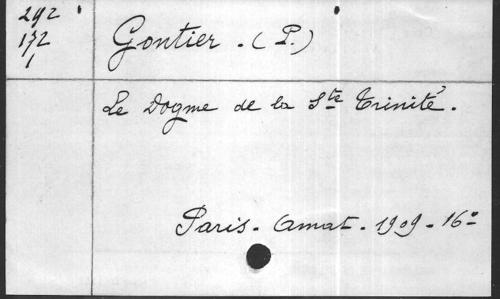 292
172
1
Gontier. (P.)
Le Dogme de la Ste Trinité.
Paris. Amat. 1909. 16º